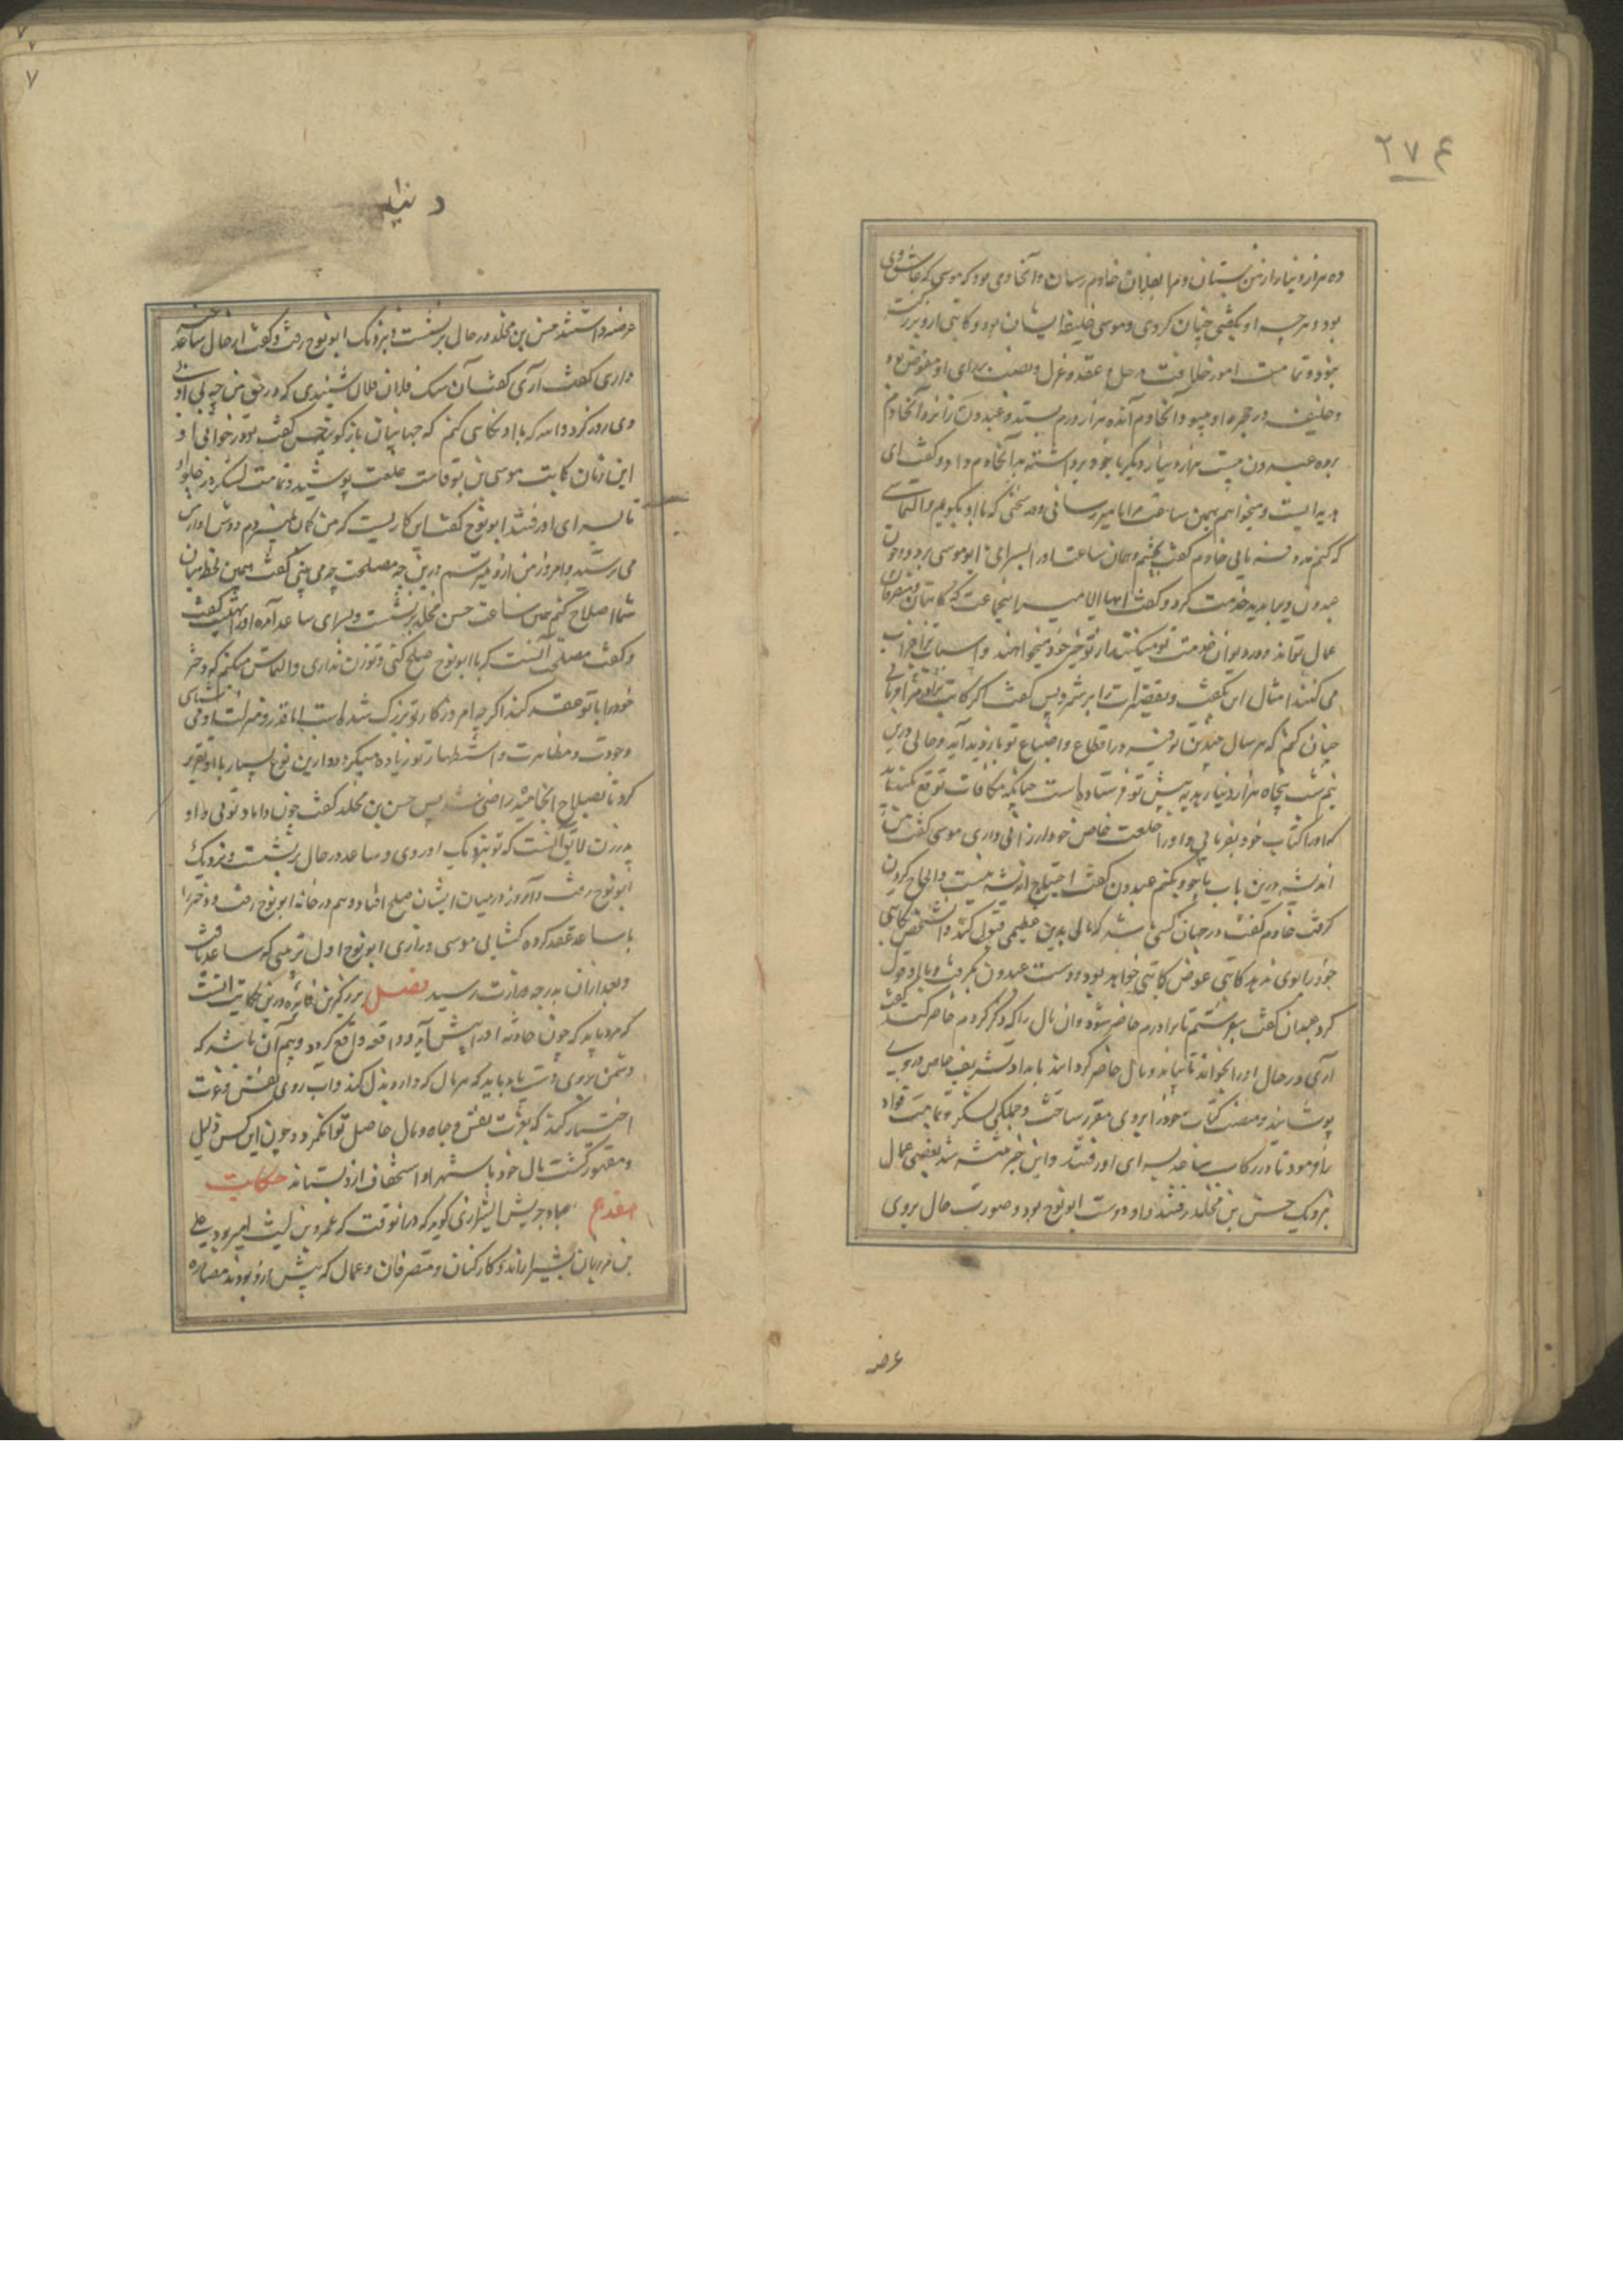 ۲۷۴
ده هزار دینار از من بستان و مرا بفلان خادم رسان و آنخادمی بود که موسی که عاشق وی
بود و هرچه او بگفتی چنان کردی و موسی خلیفه ایشان بود و کاتبی ازو بزرگتر
نبود و تمامت امور خلافت و حل و عقد و عزل و نصب برای او مفوض بود
و خلیفه در حجره او میبود آنخادم آن ده هزار درم بستد و عبدون را نزد آنخادم
برد عبدون بیست هزار دینار دیگر با خود برداشته بدآنخادم داد و گفت ای
هدیه ایست و میخواهم همین ساعت مرا بامیر رسانی و مدد سخنی که با او بگویم و التماسی
که کنم مدد فرمایی خادم گفت بچشم و همان ساعت او را بسرای ابو موسی برد و چون
عبدون ویرا بدید خدمت کرد و گفت ایها الامیر اینجماعت که کاتبان و متصرفان
عمال تواند و در دیوان خدمت تو میکنند از تو خیر خود میخواهند و اسباب ترا خراب
می کنند امثال این بگفت و تقصیرات را برشمرد پس گفت اگر کتابت برادرم را فرمایی
چنان کنم که هر سال چندین توفیر در اقطاع و ضیاع تو بازدید آید و حالی درین
نیم شب پنجاه هزار دینار هدیه پیش تو فرستاده است چنانکه مکافات توقع میکند باید
که او را کتابت خود بفرمایی و او را خلعت خاص خود ارزانی داری موسی گفت من
اندیشه درین باب با خود بکنم عبدون گفت احتیاج اندیشه نیست و الحاح کردن
گرفت خادم گفت در جهان کسی باشد که مالی بدین عظیمی قبول کند و اشخص کاتبی
خود را بوی ندهد کاتبی عوض کاتبی خواهد بود و دست عبدون بگرفت و با او قول
کرد عبدان گفت بفرستم تا برادرم حاضر شود و آن مال را که ذکر کردم حاضر کند گفت
آری در حال او را بخواند تا بیاید و مال حاضر کردانید بامداد تشریف خاص در وی
پوشانید و منصب کتابت خود را بر وی مقرر ساخت و جملگی لشکر و تمامیت قواد
بفرمود تا در رکاب صاعد بسرای او رفتند و این خبر منتشر شد بعضی عمال
نزدیک حسن بن مخلد رفتند و او دوست ابو نوح بود و صورت حال بروی
عرضه
۷
عرضه داشتند حسن بن مخلد در حال برنشست و نزدیک ابو نوح رفت و گفت از حال ساعد خبر
داری گفت آری گفت آن سک فلان فلان شنیدی که در حق من چه بی ادبی
وی روز کرد والله که با او نکالی کنم که جهانیان بازگویند حسن گفت تو در خوابی او
این زمان کاتب موسی بن بوقاست خلعت پوشیده و تمامت لشکر در جلو او
تا بسرای او رفتند ابو نوح گفت این کاریست که من گمان نمیبردم دوش او از من
می ترسید و امروز من ازو میترسم درین چه مصلحت چه می بینی گفت همین لحظه میان
شما اصلاح کنم همین ساعت حسن مخلد برنشست و بسرای ساعد آمد او را تهنیت گفت
و گفت مصلحت آنست که با ابو نوح صلح کنی و تو زن نداری و التماس میکنم که دختر
خود را با تو عقد کند اگرچه امروز کار تو بزرگ شد است اما قدر و منزلت او می شناسی
وجودت و مظاهرت و استظهار تو زیاده میگردد و ازین نوع بسیار با او تقریر
کرد تا بصلاح انجامید راضی شد پس حسن بن مخلد گفت چون داماد تویی و او
پدر زن لایق آنست که تو نزدیک او روی و ساعد در حال برنشست و نزدیک
ابو نوح رفت و آن روز در میان ایشان صلح افتاد و هم در خانه ابو نوح رفت و دختر را
با ساعد عقد کرد کتابت موسی و رازی ابو نوح اول ترتیبی که ساعد یافت
و بعد ازان بدرجه وزارت رسید فصل بزرگترین فایده درین حکایت آنست
که مرد باید که چون حادثه او را پیش آید و واقعه واقع گردد و بیم آن باشد که
دشمن بروی دست یابد باید که هر مال که دارد بذل کند و آب روی نفس و عزت
اختیار کند که بعزت نفس و جاه و مال حاصل توان کرد و چون این کس ذلیل
و مقهور گشت مال خود باستهزا و استخفاف ازو بستانند حکایت
هفدهم عباد جریش الشیرازی گوید که در آنوقت که عمرو بن لیث امیر بود علی
بن مرزبان بشیراز اند و کارکنان و متصرفان و عمال که پیش ازو بودند مصادره